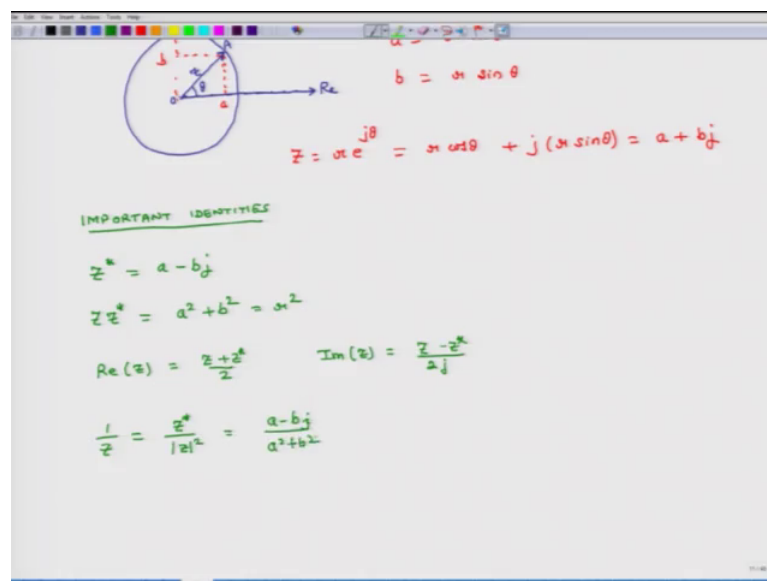 Edit View Insert Actions Tools Help
A
b
r
θ
O
a
Re
b = r sin θ
z = re^{jθ} = r cosθ + j (r sinθ) = a + bj
IMPORTANT IDENTITIES
z* = a - bj
zz* = a² + b² = r²
Re(z) = (z + z*)/2 Im(z) = (z - z*)/2j
1/z = z*/|z|² = (a - bj)/(a² + b²)